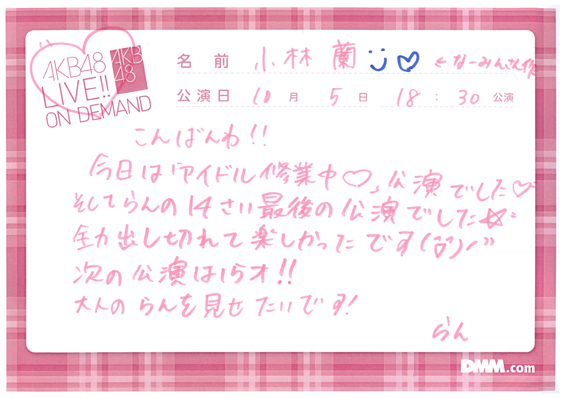 AKB48
LIVE!!
ON DEMAND
AKB
48
名前 小林 蘭 ←なーみんさん作
公演日 10月 5日 18:30 公演
こんばんわ!!
今日は「アイドル修業中♡」公演でした♡
そしてらんの14さい最後の公演でした☆
全力出し切れて楽しかったです
次の公演は15才!!
大人のらんを見せたいです!
らん
DMM.com